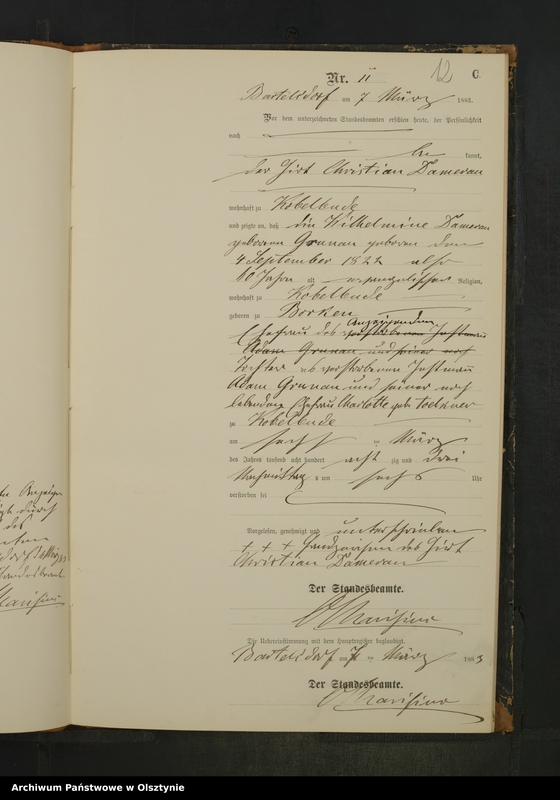 12
Nr. 11
C.
Bartelsdorf am 7 März 1883.
Vor dem unterzeichneten Standesbeamten erschien heute, der Persönlichkeit
nach
be kannt,
der Hirt Christian Damerau
wohnhaft zu Kobelbude
und zeigte an, daß die Wilhelmine Damerau
geborene Grunau geboren den
4 September 1822 also
60 Jahre alt evangelischer Religion,
wohnhaft zu Kobelbude
geboren zu Borken
Ehefrau des Anzeigenden
verstorbenen Instmann
Adam Grunau und seiner noch
Tochter des verstorbenen Instmann
Adam Grunau und seiner noch
lebenden Ehefrau Charlotte geb.
zu Kobelbude
am sechs ten März
des Jahres tausend acht hundert acht zig und drei
Nachmittag s um sechs Uhr
verstorben sei
Vorgelesen, genehmigt und unterschrieben
+ + + Handzeichen des Hirt
Christian Damerau
Der Standesbeamte.
Die Uebereinstimmung mit dem Hauptregister beglaubigt.
Bartelsdorf am 7 ten März 1883
Der Standesbeamte.
Anzeigen
durch
des
Archiwum Państwowe w Olsztynie